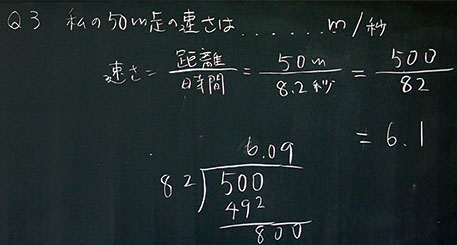 Q3 私の50m走の速さは......m/秒
速さ=距離/時間=50m/8.2秒=500/82
=6.1
6.09
82)500
492
800